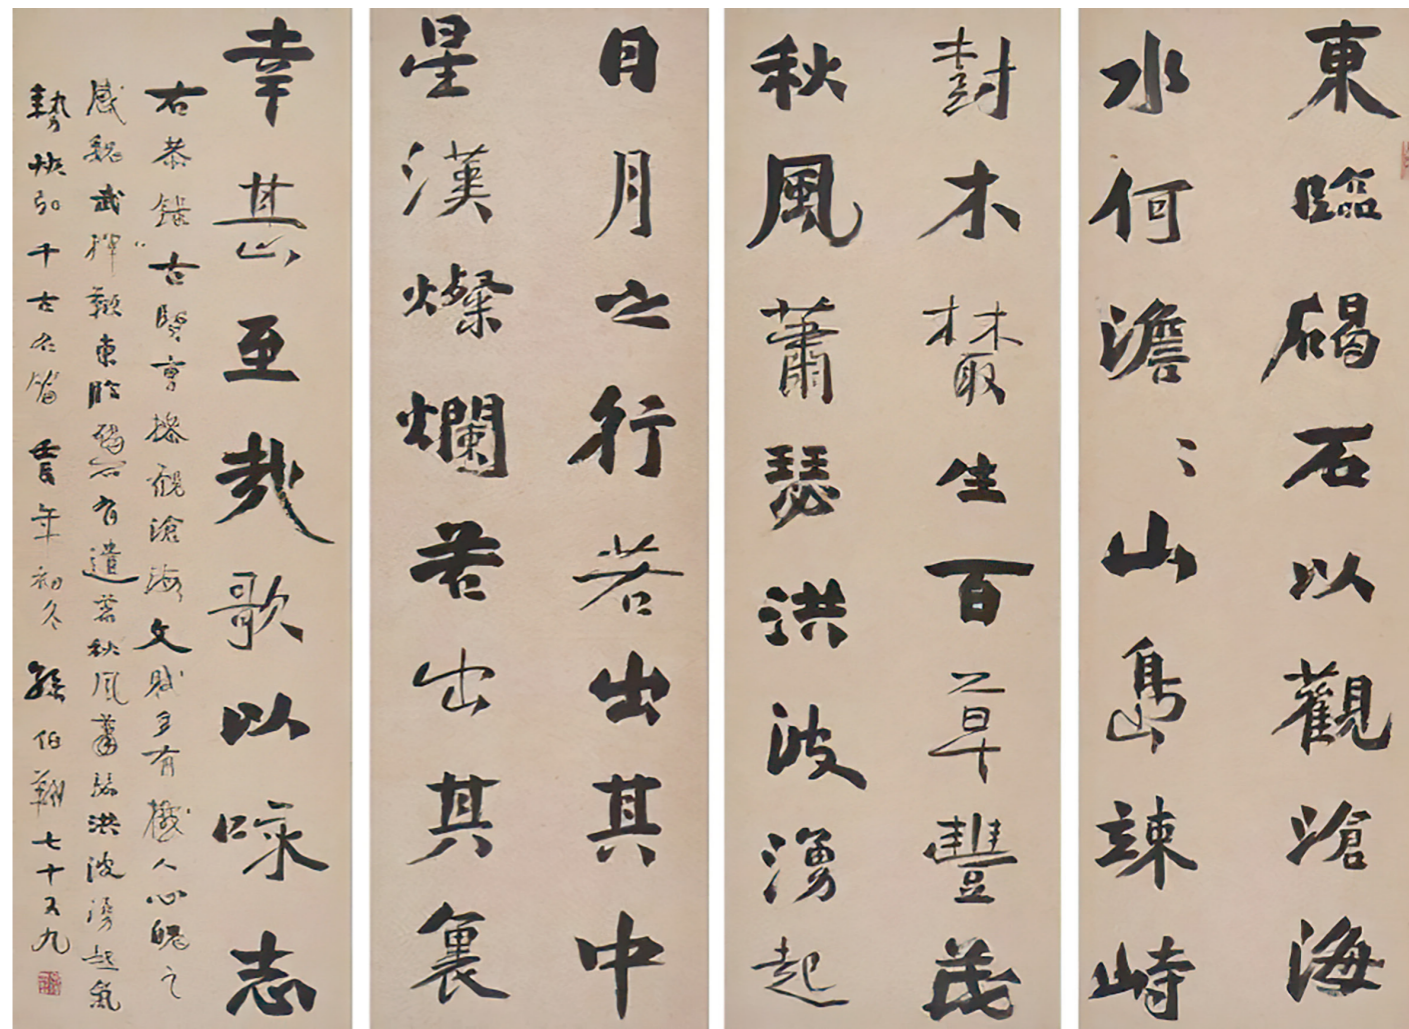 東臨碣石以觀滄海
水何澹〻山島竦峙
尌木叢生百草豐茂
秋風蕭瑟洪波湧起
日月之行若出其中
星漢燦爛若出其裏
幸甚至哉歌以咏志
右恭錄古賢曹操觀滄海文賦多有撼人心魄之
感魏武揮鞭東臨碣石有遺著秋風蕭瑟洪波湧起氣
勢恢弘千古名篇壬辰年初冬孫伯翔七十又九